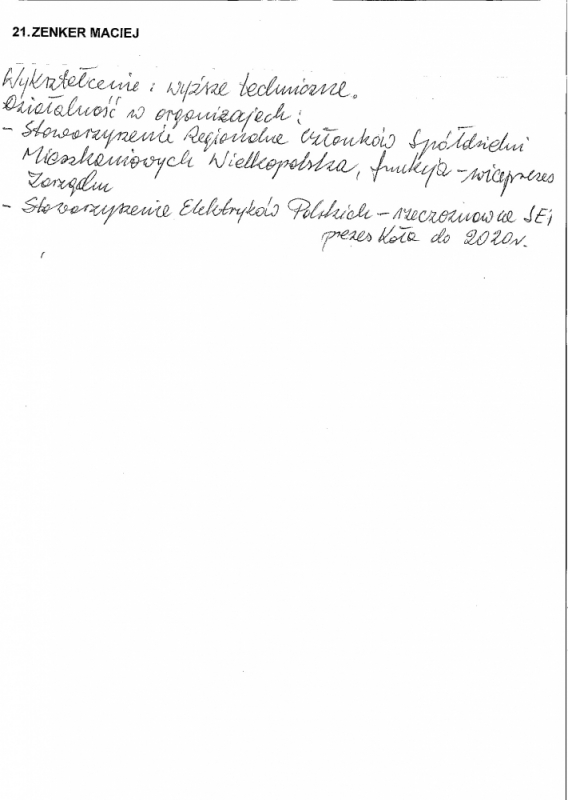 21. ZENKER MACIEJ
Wykształcenie: wyższe techniczne.
Działalność w organizajach:
- Stowarzyszenie Regionalne Członków Spółdzielni
Mieszkaniowych Wielkopolska, funkcja - wiceprezes
Zarządu
- Stowarzyszenie Elektryków Polskich - rzeczoznawca SEi
prezes Koła do 2020r.